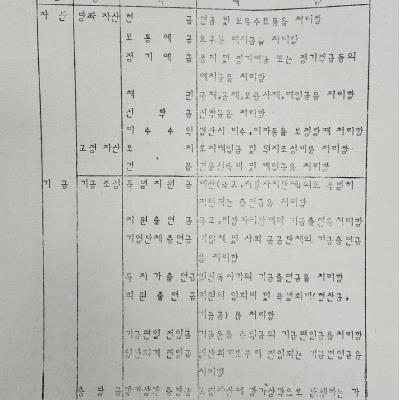 자 산 당좌 자산 현 금 현금 및 보유수표등을 처리함
보 통 예 금 요구불 예치금을 처리함
정 기 예 금 통지 및 정기예금 또는 정기적금등의
예치금을 처리함
채 권 국채,공채,보통사채,매입금을 처리함
신 탁 금 신탁금을 처리함
미 수 수 익 결산시 미수,이자등을 보정할때 처리함
고정 자산 토 지 토지매입금 및 택지조성비를 처리함
건 물 건물신축비 및 매입금을 처리함
기 금 기금 조성 특 별 지 원 금 예산(국고,지방자치단체)으로 특별히
지원되는 출연금을 처리함
지 원 출 연 금 국고,지방자치단체의 기금출연을 처리함
기업단체 출연금 기업체 및 사회 공공단체의 기금출연금
을 처리함
독 지 가 출 연 금 일반독지가의 기금출연금을 처리함
회 원 출 연 금 회원의 입회비 및 특별회비(협찬금,
기금) 를 처리함
기금편입 전입금 기금운용 수익금의 기금편입금을 처리함
일반회계 전입금 일반회계로부터 전입되는 기금편입금을
처리함
충 당 금 감가상각 충당금 고정자산에 감가상각으로 발생하는 가